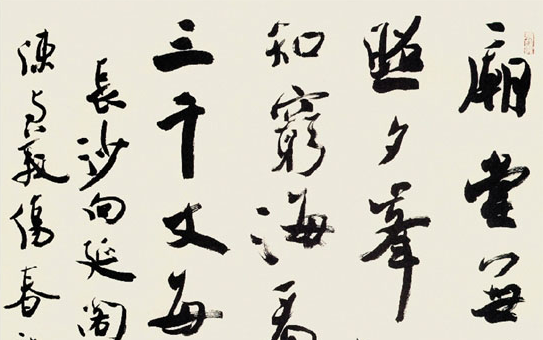 廟堂無
照夕峯
知窮海看
三千丈每
長沙向延閣
陳與義傷春